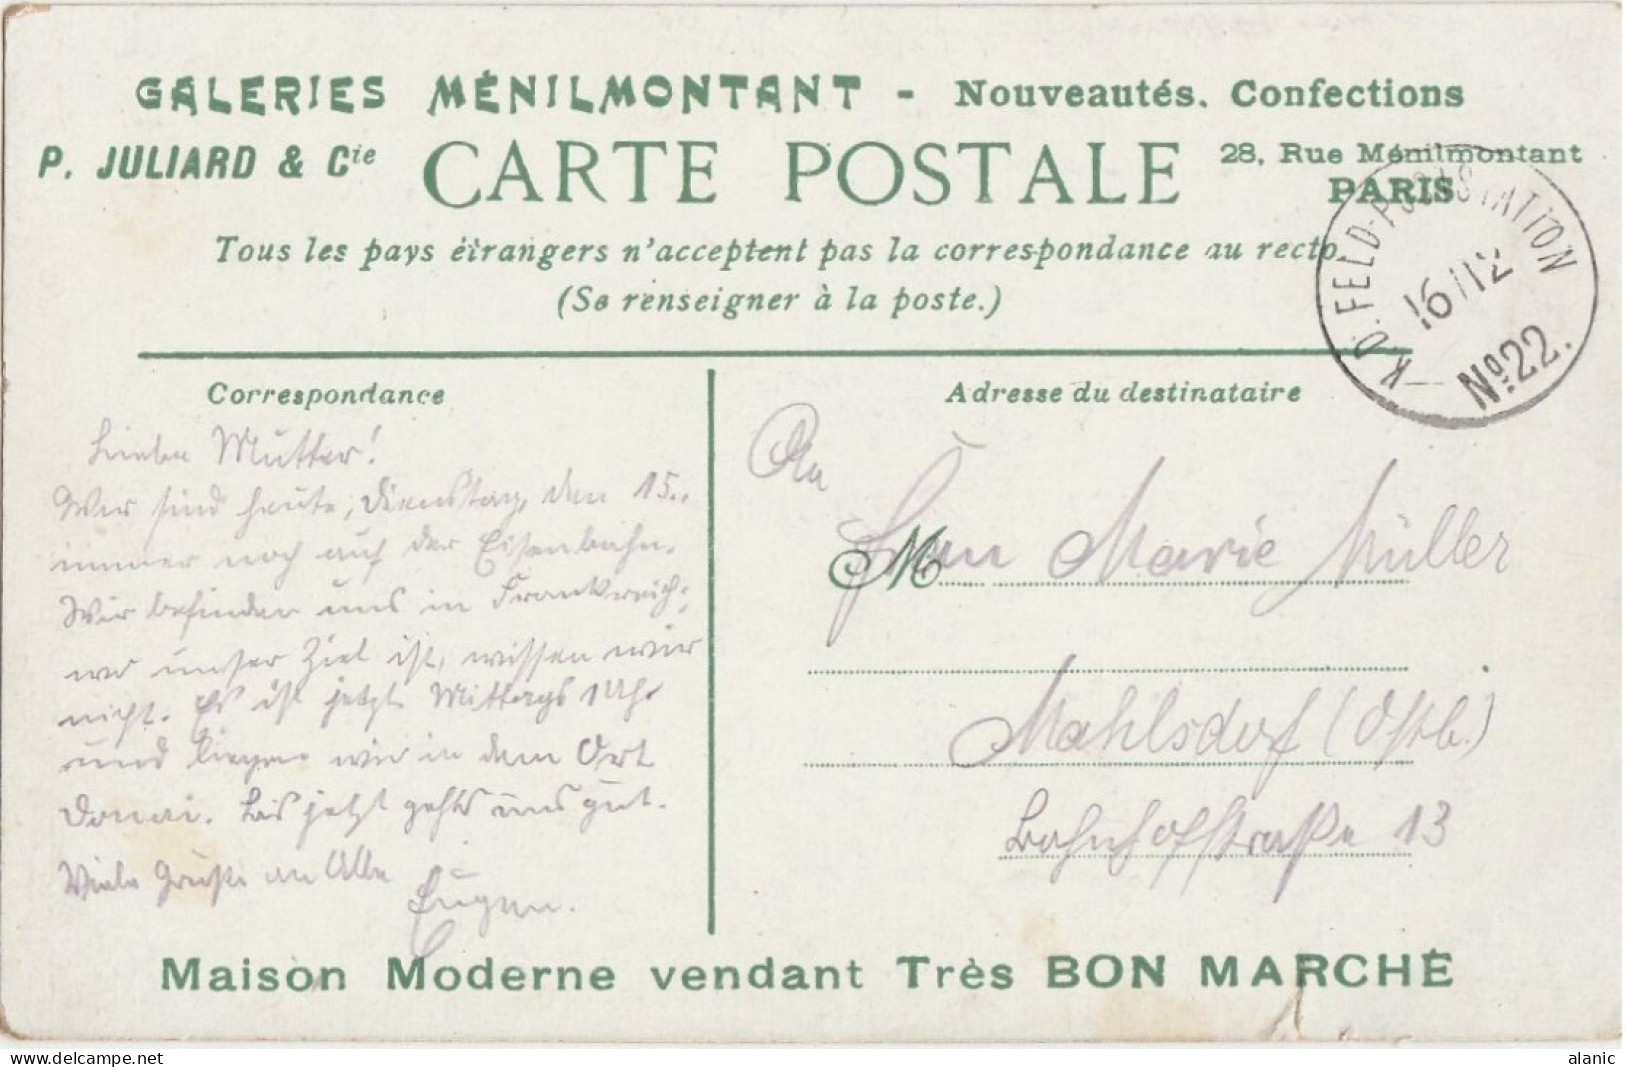 GALERIES MÉNILMONTANT - Nouveautés. Confections
P. JULIARD & Cie CARTE POSTALE 28, Rue Ménilmontant
PARIS
Tous les pays étrangers n'acceptent pas la correspondance au recto.
(Se renseigner à la poste.)
K.D. FELD-POSTSTATION
16/12
No. 22.
Correspondance
Liebe Mutter!
Wir sind heute, Dienstag, den 15.,
immer noch auf der Eisenbahn.
Wir befinden uns in Frankreich;
wo unser Ziel ist, wissen wir
nicht. Es ist jetzt Mittags 1 Uhr
und liegen wir in dem Ort
Douai. Bis jetzt gehts uns gut.
Viele Grüße an Alle
Eugen.
Adresse du destinataire
An
M
Frau Marie Müller
Mahlsdorf (Ostb.)
Bahnhofstraße 13
Maison Moderne vendant Très BON MARCHÉ
delcampe.net
alanic